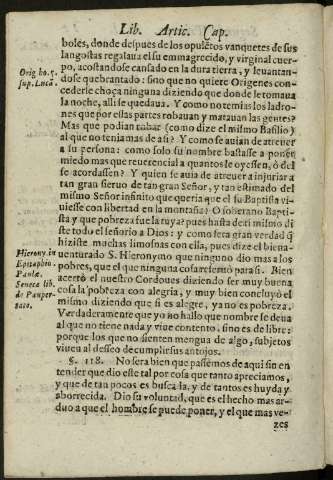 Lib. Artic. Cap.
boles, donde despues de los opulẽtos vanquetes de sus
langostas regalaua el su enmagrecido, y virginal cuer-
po, acostandose cansado en la dura tierra, y leuantan-
dose quebrantado: sino que no quiere Origenes con-
cederle choça ninguna diziendo que donde le tomaua
la noche, alli se quedaua. Y como no temias los ladro-
nes que por ellas partes robauan y matauan las gentes?
Mas que podian robar (como dize el mismo Basilio)
al que no tenia mas de asi? Y como se auian de atreuer
a su persona: como solo su nombre bastasse a poner
miedo mas que reuerencial a quantos le oyessen, ò del
se acordassen? Y quien se auia de atreuer a injuriar a
tan gran sieruo de tan gran Señor, y tan estimado del
mismo Señor infinito que queria que el su Baptista vi-
uiesse con libertad en la montaña? O soberano Bapti-
sta y que pobreza fue la tuya? pues hasta de ti mismo di
ste todo el señorio a Dios: y como sera gran verdad q̃
hiziste muchas limosnas con ella, pues dize el biena-
uenturado S. Hieronymo que ninguno dio mas a los
pobres, que el que ninguna cosa reseruò para si. Bien
acertò el nuestro Cordoues diziendo ser muy buena
cosa la pobreza con alegria, y muy bien concluyò el
mismo diziendo que si es alegre, ya no es pobreza.
Verdaderamente que yo no hallo que nombre se deua
al que no tiene nada y viue contento, sino es de libre:
porque los que no sienten mengua de algo, subjetos
viuen al desseo de cumplir sus antojos.
§. 118. No sera bien que passemos de aqui sin en-
tender que dio este tal por cosa que tanto apreciamos,
y que de tan pocos es busca la, y de tantos es huyda y
aborrecida. Dio su voluntad, que es el hecho mas ar-
duo a que el hombre se puede poner, y el que mas ve-
zes
Orig. ho. 5.
sup. Luca.
Hierony. in
Epitaphio
Paulæ.
Seneca lib.
de Pauper-
tate.